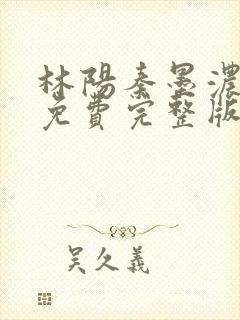 林陽秦墨濃
免費完整版
吴久義